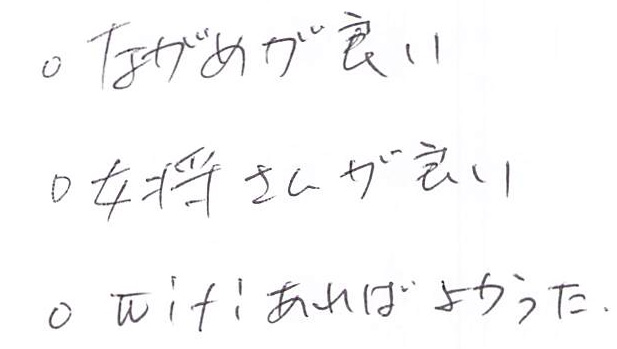 ○ ながめが良い
○ 女将さんが良い
○ wifiあればよかった.